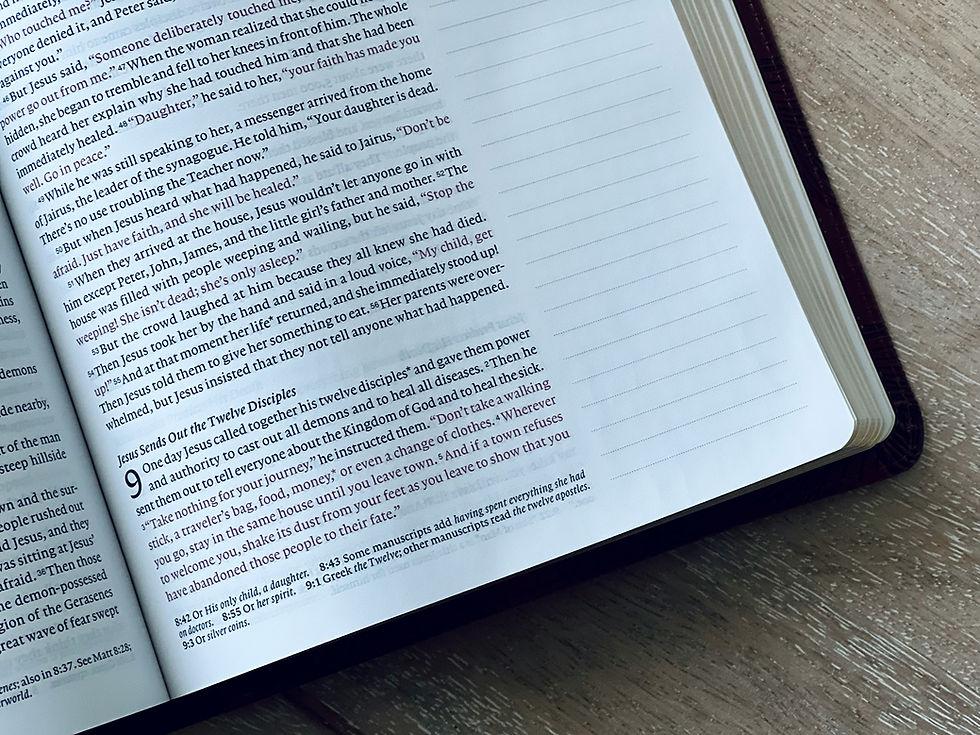 demons
de nearby,
t of the man
steep hillside
wn and the sur-
eople rushed out
d Jesus, and they
was sitting at Jesus'
afraid. 36Then those
he demon-possessed
gion of the Gerasenes
great wave of fear swept
enes; also in 8:37. See Matt 8:28;
erworld.
Who touched me?"
everyone denied it, and Peter said
against you."
46But Jesus said, "Someone deliberately touched me,
power go out from me." 47When the woman realized that she could no
hidden, she began to tremble and fell to her knees in front of him. The whole
crowd heard her explain why she had touched him and that she had been
immediately healed. 48"Daughter," he said to her, "your faith has made you
well. Go in peace."
49While he was still speaking to her, a messenger arrived from the home
of Jairus, the leader of the synagogue. He told him, "Your daughter is dead.
There's no use troubling the Teacher now."
50But when Jesus heard what had happened, he said to Jairus, "Don't be
afraid. Just have faith, and she will be healed."
51When they arrived at the house, Jesus wouldn't let anyone go in with
him except Peter, John, James, and the little girl's father and mother. 52The
house was filled with people weeping and wailing, but he said, "Stop the
weeping! She isn't dead; she's only asleep."
53But the crowd laughed at him because they all knew she had died.
54Then Jesus took her by the hand and said in a loud voice, "My child, get
up!" 55And at that moment her life* returned, and she immediately stood up!
Then Jesus told them to give her something to eat. 56Her parents were over-
whelmed, but Jesus insisted that they not tell anyone what had happened.
Jesus Sends Out the Twelve Disciples
9 One day Jesus called together his twelve disciples* and gave them power
and authority to cast out all demons and to heal all diseases. 2Then he
sent them out to tell everyone about the Kingdom of God and to heal the sick.
3"Take nothing for your journey," he instructed them. "Don't take a walking
stick, a traveler's bag, food, money,* or even a change of clothes. 4Wherever
you go, stay in the same house until you leave town. 5And if a town refuses
to welcome you, shake its dust from your feet as you leave to show that you
have abandoned those people to their fate."
8:42 Or His only child, a daughter. 8:43 Some manuscripts add having spent everything she had
on doctors. 8:55 Or her spirit. 9:1 Greek the Twelve; other manuscripts read the twelve apostles.
9:3 Or silver coins.